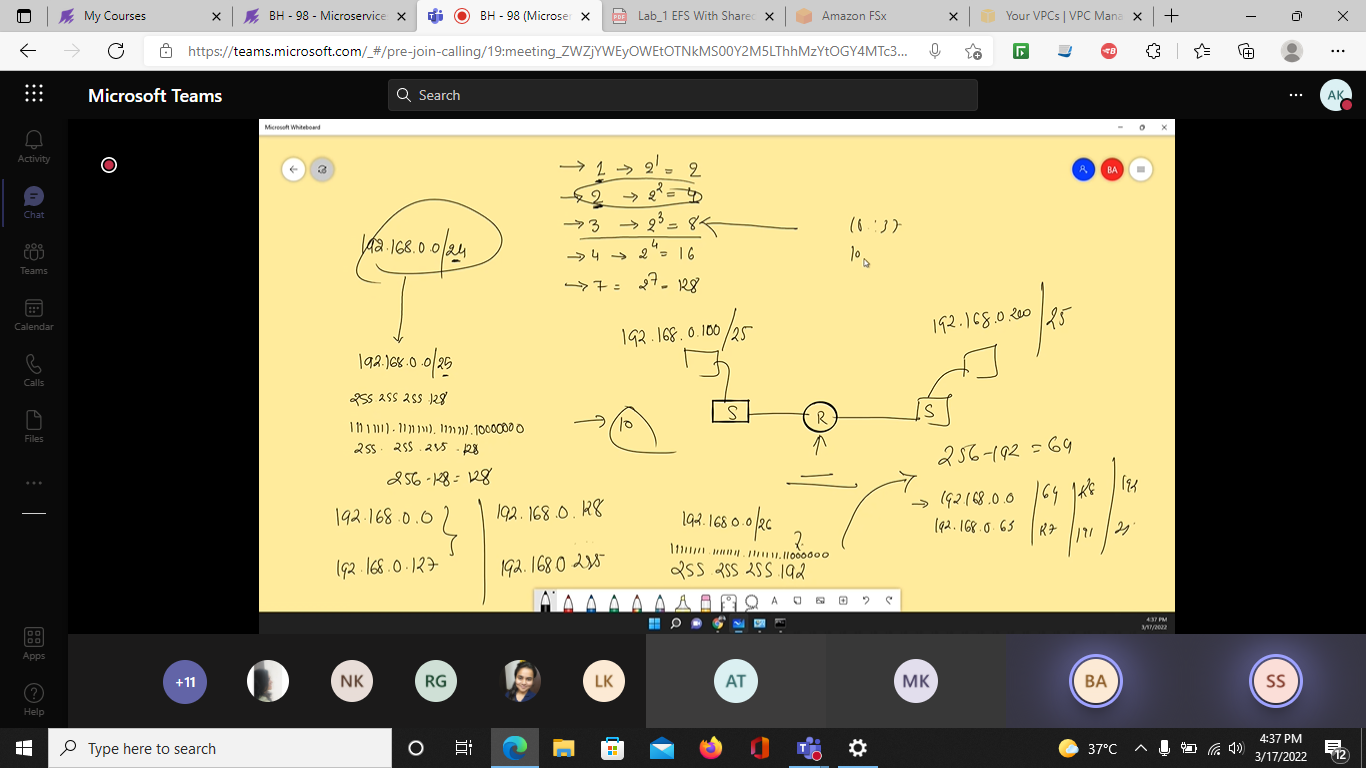 My Courses
BH - 98 - Microservice
BH - 98 (Micros
Lab_1 EFS With Share
Amazon FSx
Your VPCs | VPC Man
https://teams.microsoft.com/_#/pre-join-calling/19:meeting_ZWZjYWEyOWEtOTNkMS00Y2M5LThhMzYtOGY4MTc3...
Microsoft Teams
Search
AK
Activity
Chat
Teams
Calendar
Calls
Files
Apps
Help
Microsoft Whiteboard
BA
→ 1 → 2^1 = 2
→ 2 → 2^2 = 4
→ 3 → 2^3 = 8
→ 4 → 2^4 = 16
→ 7 = 2^7 = 128
10
192.168.0.0/24
192.168.0.0/25
255 255 255 128
11111111.11111111.11111111.10000000
255. 255. 255. 128
256-128=128
192.168.0.0
192.168.0.127
192.168.0.128
192.168.0 255
→ 10
192.168.0.100/25
192.168.0.200/25
S
R
S
192.168.0.0/26
11111111.11111111.11111111.11000000
255.255.255.192
256-192=64
→ 192.168.0.0 | 64 | 128 | 192
192.168.0.63 | 127 | 191
A
4:37 PM
3/17/2022
+11
NK
RG
LK
AT
MK
BA
SS
Type here to search
37°C
4:37 PM
3/17/2022
12